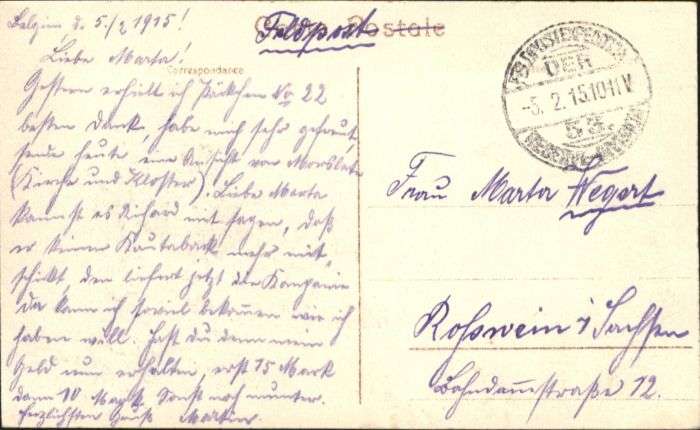 Belgien, d. 5./2 1915!
Carte Postale
Feldpost
Liebe Marta!
Correspondance
Gestern erhielt ich Päckchen No 22
besten Dank, habe mich sehr gefreut,
sende heute eine Ansicht von Moorslede
(Kirche und Kloster). Liebe Marta
kannst es Richard mit sagen, daß
er keinen Kautaback mehr mit
schickt, den liefert jetzt die Kompanie
da kann ich soviel bekommen wie ich
haben will. Hast Du denn mein
Geld nun erhalten, erst 15 Mark
dann 10 Mark. Sonst noch munter.
Herzlichsten Gruß Martin.
DER
-5.2.15.10-11V
53.
Frau Marta Wegert
Rosswein i/Sachsen
Bahndammstraße 12.